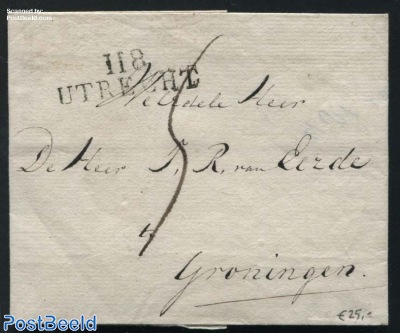 www.freestampcatalogue.com
118
UTRECHT
Weledele Heer
De Heer J. R. van Eerde
5
te
Groningen.
€25,-
PostBeeld
PostBeeld